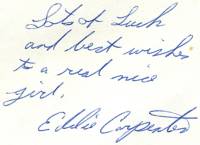 Lots of Luck
and best wishes
to a real nice
girl.
Eddie Carpenter